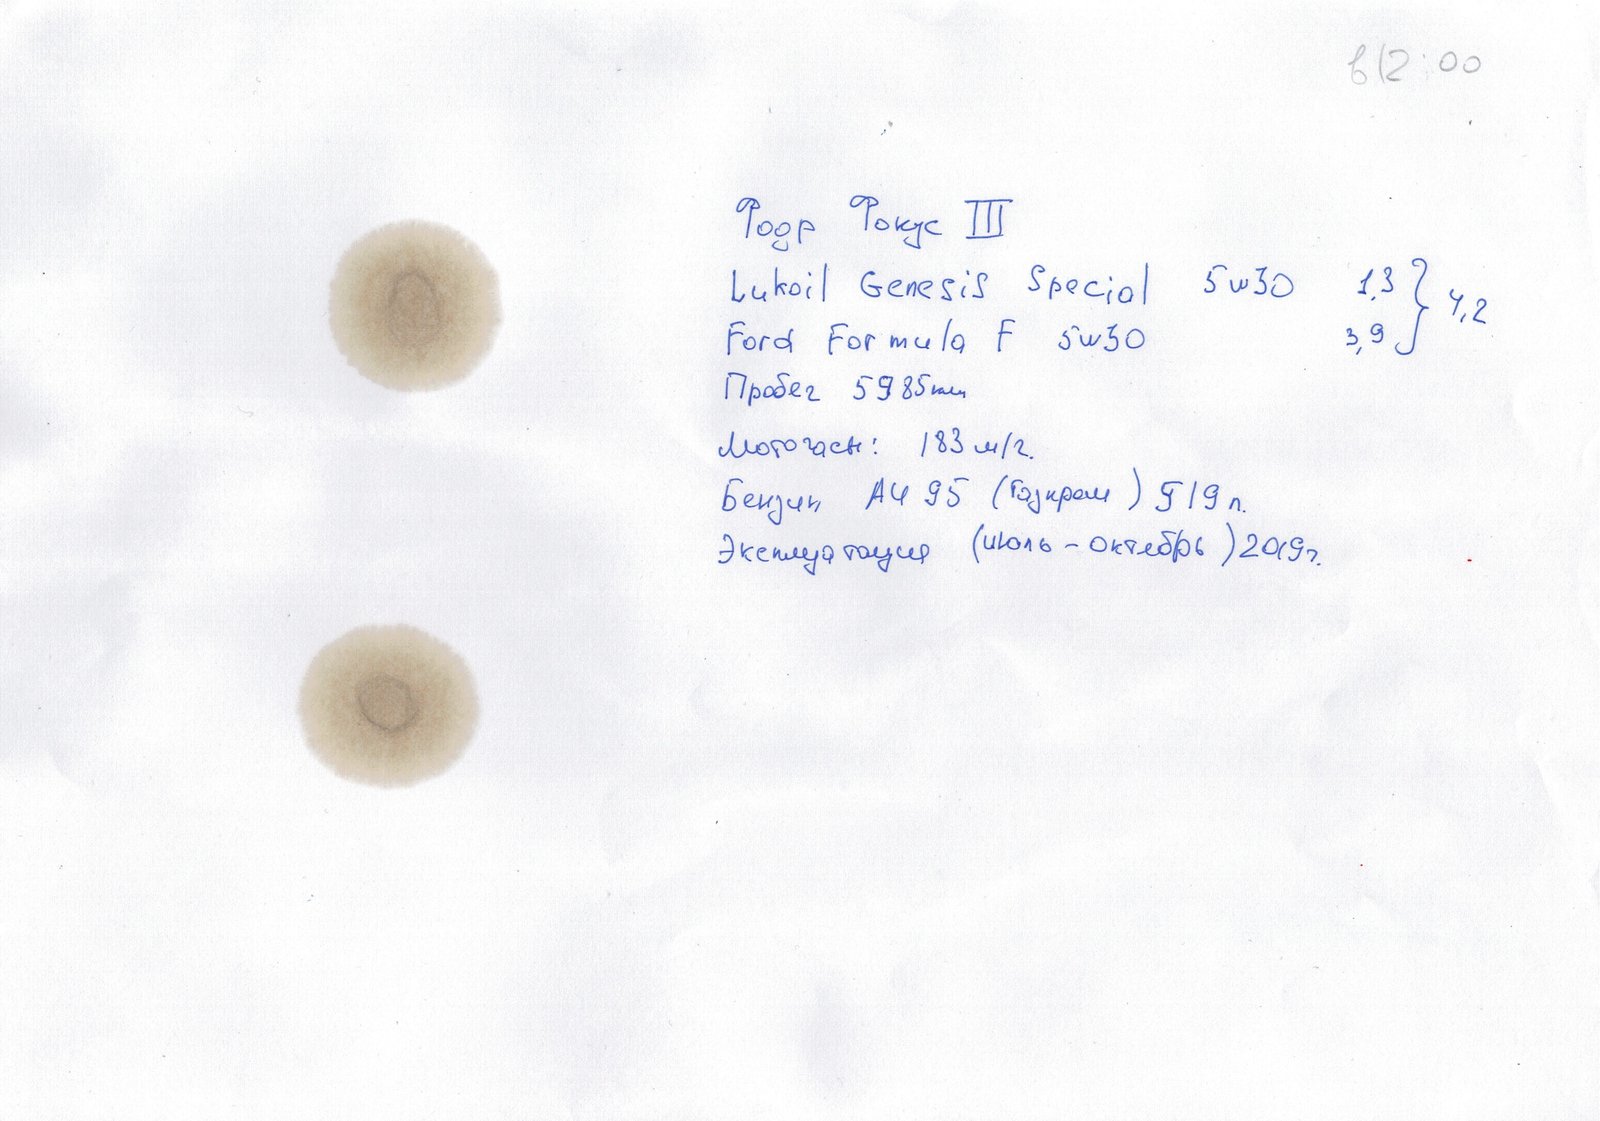 в 12:00
Фодр Фокус III
Lukoil Genesis Special 5w30 1,3 } 4,2
Ford Formula F 5w30 3,9
Пробег 5985км
Моточасы: 183 м/г.
Бензин АИ 95 (Газпром) 519 л.
Эксплуатация (июль - октябрь) 2019г.